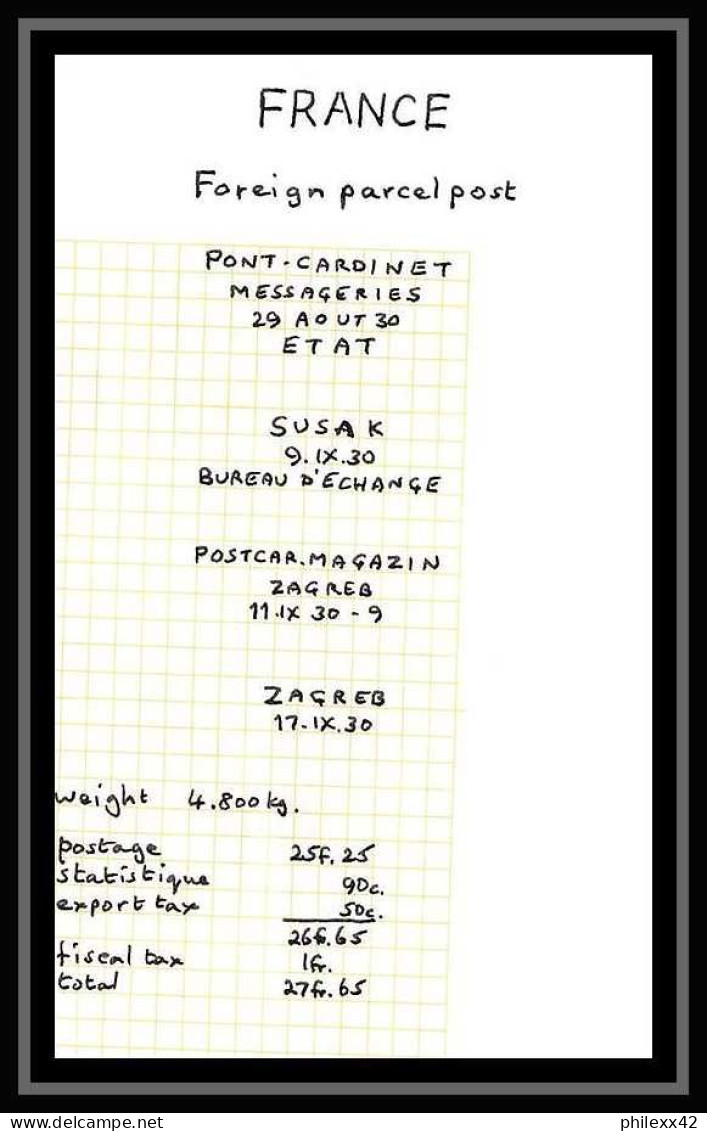 FRANCE
Foreign parcel post
PONT-CARDINET
MESSAGERIES
29 AOUT 30
ETAT
SUSAK
9.IX.30
BUREAU D'ECHANGE
POSTCAR.MAGAZIN
ZAGREB
11.IX 30 - 9
ZAGREB
17.IX.30
weight 4.800kg.
postage 25f.25
statistique 90c.
export tax 50c.
26fr.65
fiscal tax 1fr.
total 27fr.65
delcampe.net
philexx42